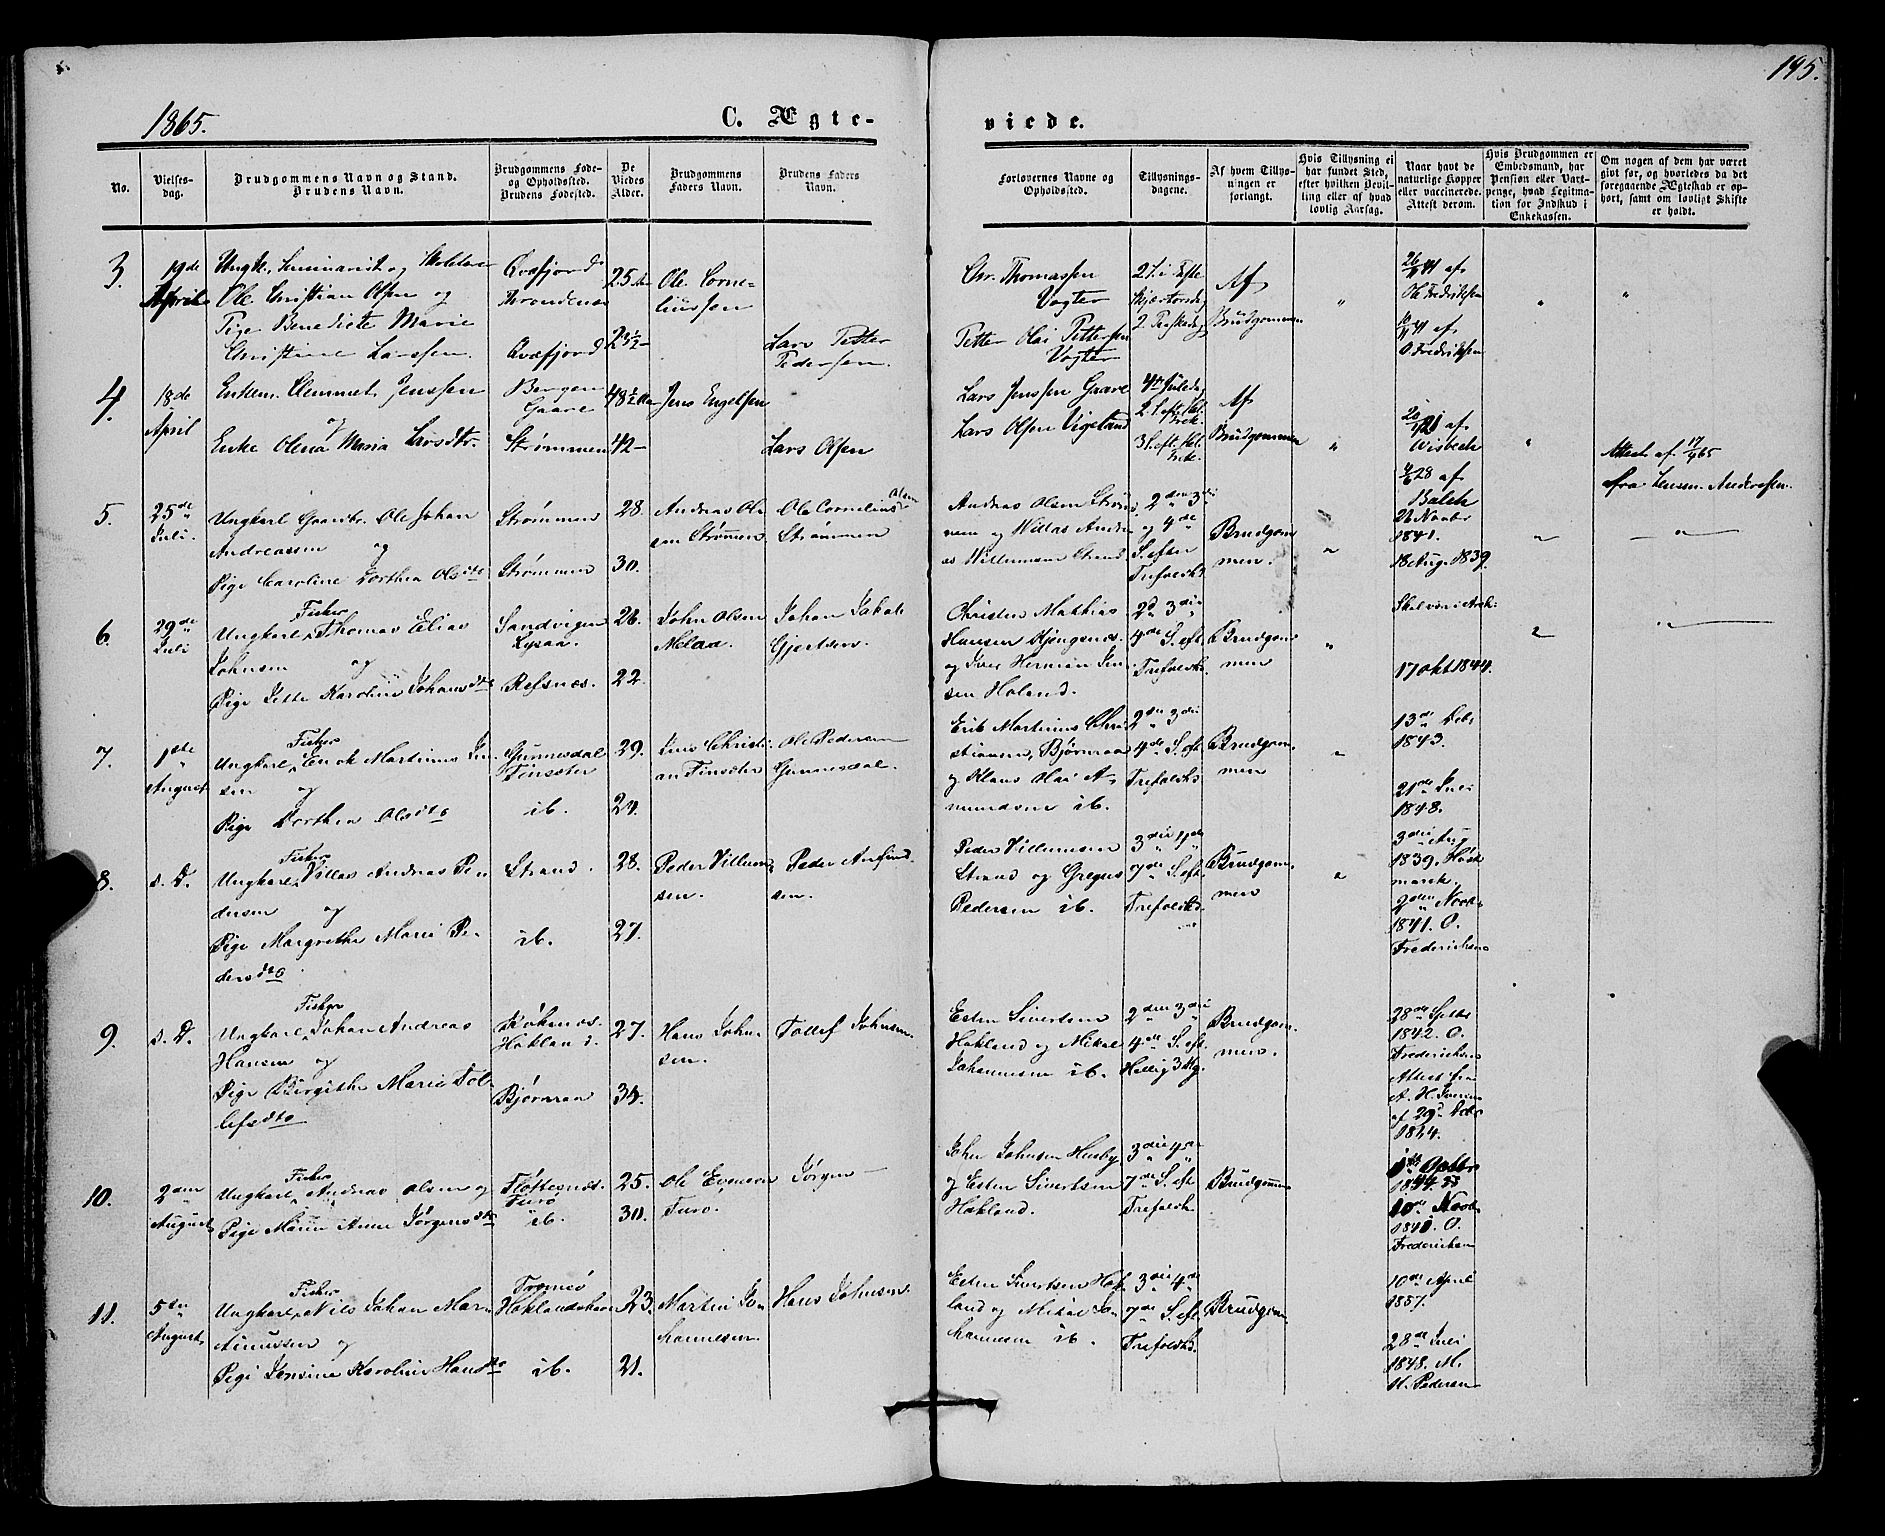 195.
1865.
C. Ægte-
viede.
No.
Vielses-
dag.
Brudgommens Navn og Stand.
Brudens Navn.
Brudgommens Føde-
og Opholdssted.
Brudens Fødested.
De
Viedes
Alder.
Brudgommens
Faders Navn.
Brudens Faders
Navn.
Forlovernes Navne og
Opholdssted.
Tillysnings-
dagene.
Af hvem Tillys-
ningen er
forlangt.
Hvis Tillysning ei
har fundet Sted,
efter hvilken Bevil-
ling eller af hvad
lovlig Aarsag.
Naar havt de
naturlige Kopper
eller vaccinerede.
Attest derom.
Hvis Brudgommen er
Embedsmand, har
Pension eller Vart-
penge, hvad Legitima-
tion for Indskud i
Enkekassen.
Om nogen af dem har været
givt før, og hvorledes da det
foregaaende Ægteskab er op-
hørt, samt om lovligt Skifte
er holdt.
3.
19de
April
Ungk., Seminarist og
Ole Christian Olsen og
Pige Benedicte Marie
Christine Larssen.
Qvæfjord
Trondenæs
Qvæfjord
25
23½
Ole Corne-
liussen
Lars Petter
Pedersen.
Chr. Thomassen
Vogter
Petter Olai Pettersen
Vogter
Skjærtorsdag
2 Paaskedag
Af
Brudgommen
26/ 41 af
Ole Fredriksen
41 af
O. Fredriksen
4.
18de
April
Enkem. Clemmet Jenssen
og
Enke Olena Maria Larsdtr.
Bergen
Gaare
Strømmen
48½
42
Jens Engelsen
Lars Olsen
Lars Jenssen Gaare
Lars Olsen Vigeland
Af
Brudgommen
20/ 21 af
Wisbech
28 af
Balch
Attest af 17/4 65
fra Lensm. Andersen.
5.
25de
Juli.
Ungkarl Gaardbr. Ole Johan
Andreassen og
Pige Caroline Dorthea Olsdtr
Strømmen
Strømmen
28.
30.
Andreas Ol-
sen Strømen
Ole Cornelius Olsen
Strømmen
Andreas Olsen Strøm-
men og Villas Andre-
as Willumsen Strand
2den 3die
og 4de
S. efter
Trefoldhd.
Brudgom
men.
26 Novbr
1841.
18 Aug. 1839.
6.
29de
Juli
Fisker
Ungkarl, Thomas Elias
Johnsen og
Pige Jette Karolin Johansdtr
Sandvigen
Lysaa.
Refsnæs.
26.
22.
John Olsen
Melaa.
Johan Jakob
Gjertsen.
Christen Mathias
Hansen Kjøngsnæs.
og Iver Herman Jen-
sen Haland.
2d 3die
4de S. eft.
Trefoldh.
Brudgom
men
17 Okt 1844.
7.
1ste
August
Fisker
Ungkarl, Enok Martinus Jen-
sen og
Pige Dorthea Olsdtr
Gunnesdal
Finsæter
ib.
29.
24.
Jens Christi-
an Finsæter
Ole Pedersen
Gunnesdal.
Erik Martinus Chri-
stiansen, Bjørnraa
og Klaus Olai A-
mundsen ib.
2den 3die
4de S. eft
Trefoldhd
Brudgom
men
13de Debr
1843.
21de Juli
1848.
8.
s. D.
Fisker
Ungkarl, Villas Andreas Pe-
dersen og
Pige Margrethe Marie Pe-
dersdtr
Strand.
ib.
28.
27.
Peder Villum-
sen.
Peder Anfind-
sen.
Peder Villumsen
Strand og Gregus
Pedersen ib.
3die 4de
7de S. eft.
Trefoldhd.
Brudgom
men
3die Aug
1839. Høst
mark.
2den Novbr
1841. O.
Frederiksen
9.
s. D.
Fisker
Ungkarl, Johan Andreas
Hansen og
Pige Birgithe Marie Tol-
lefsdtr
Køknæs.
Hokland.
Bjørnraa
27.
34.
Hans John-
sen.
Tollef Johnsen
Esten Sivertsen
Hokland og Mikal
Johannesen ib.
2den 3die
4de S. eft.
Hellig 3 Kg.
Brudgom
men.
28de Septbr
1842. O.
Frederiksen
Attest fra
af 29d. Debr
1864.
10.
2den
August
Fisker
Ungkarl, Andreas Olsen og
Pige Maren Anne Jørgensdtr
Fløttesnes.
Furø
ib.
25.
30.
Ole Evensen
Furø.
Jørgen —
John Johnsen Husby
og Esten Sivertsen
Hokland.
3die 4de
7de S. eft
Trefoldh
Brudgommen
1844.
10de Novbr
1840. O.
Frederiksen
11.
5te
August
Fisker
Ungkarl, Nils Johan Mar-
tinussen og
Pige Jensine Karoline Hansdtr
Tromsø
Hoklandshavn
ib.
23.
21.
Martin Jo-
hannesen.
Hans Johnsen.
Esten Sivertsen Hok-
land og Mikal Jo-
hannesen ib.
3die 4de
7de S. eft.
Trefoldhd.
Brudgom
10de April
1857.
28de Juli
1848. M.
H. Pedersen